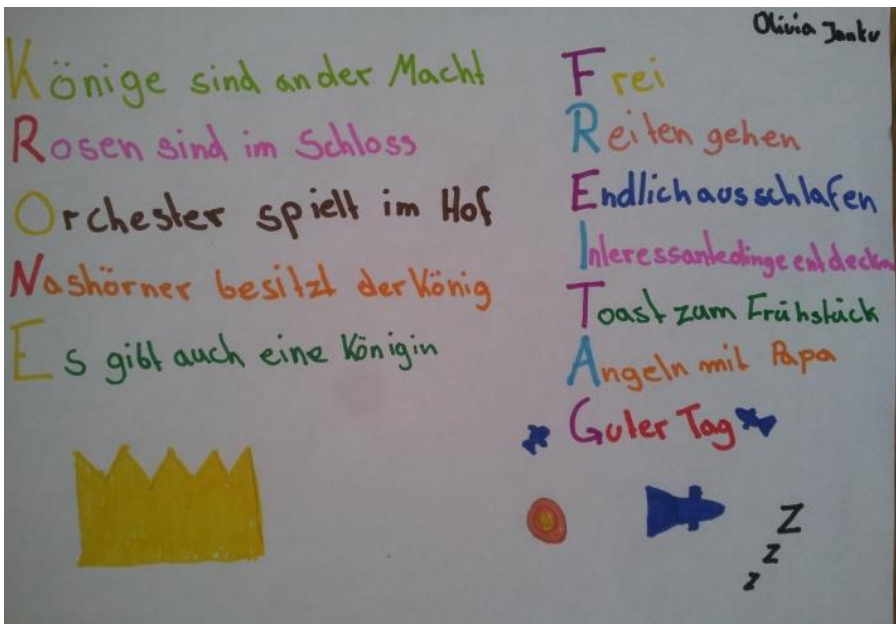 Olivia Janku
Könige sind an der Macht
Rosen sind im Schloss
Orchester spielt im Hof
Nashörner besitzt der König
Es gibt auch eine Königin
Frei
Reiten gehen
Endlich ausschlafen
Interessante dinge entdecken
Toast zum Frühstück
Angeln mit Papa
Guter Tag
Z
z
z